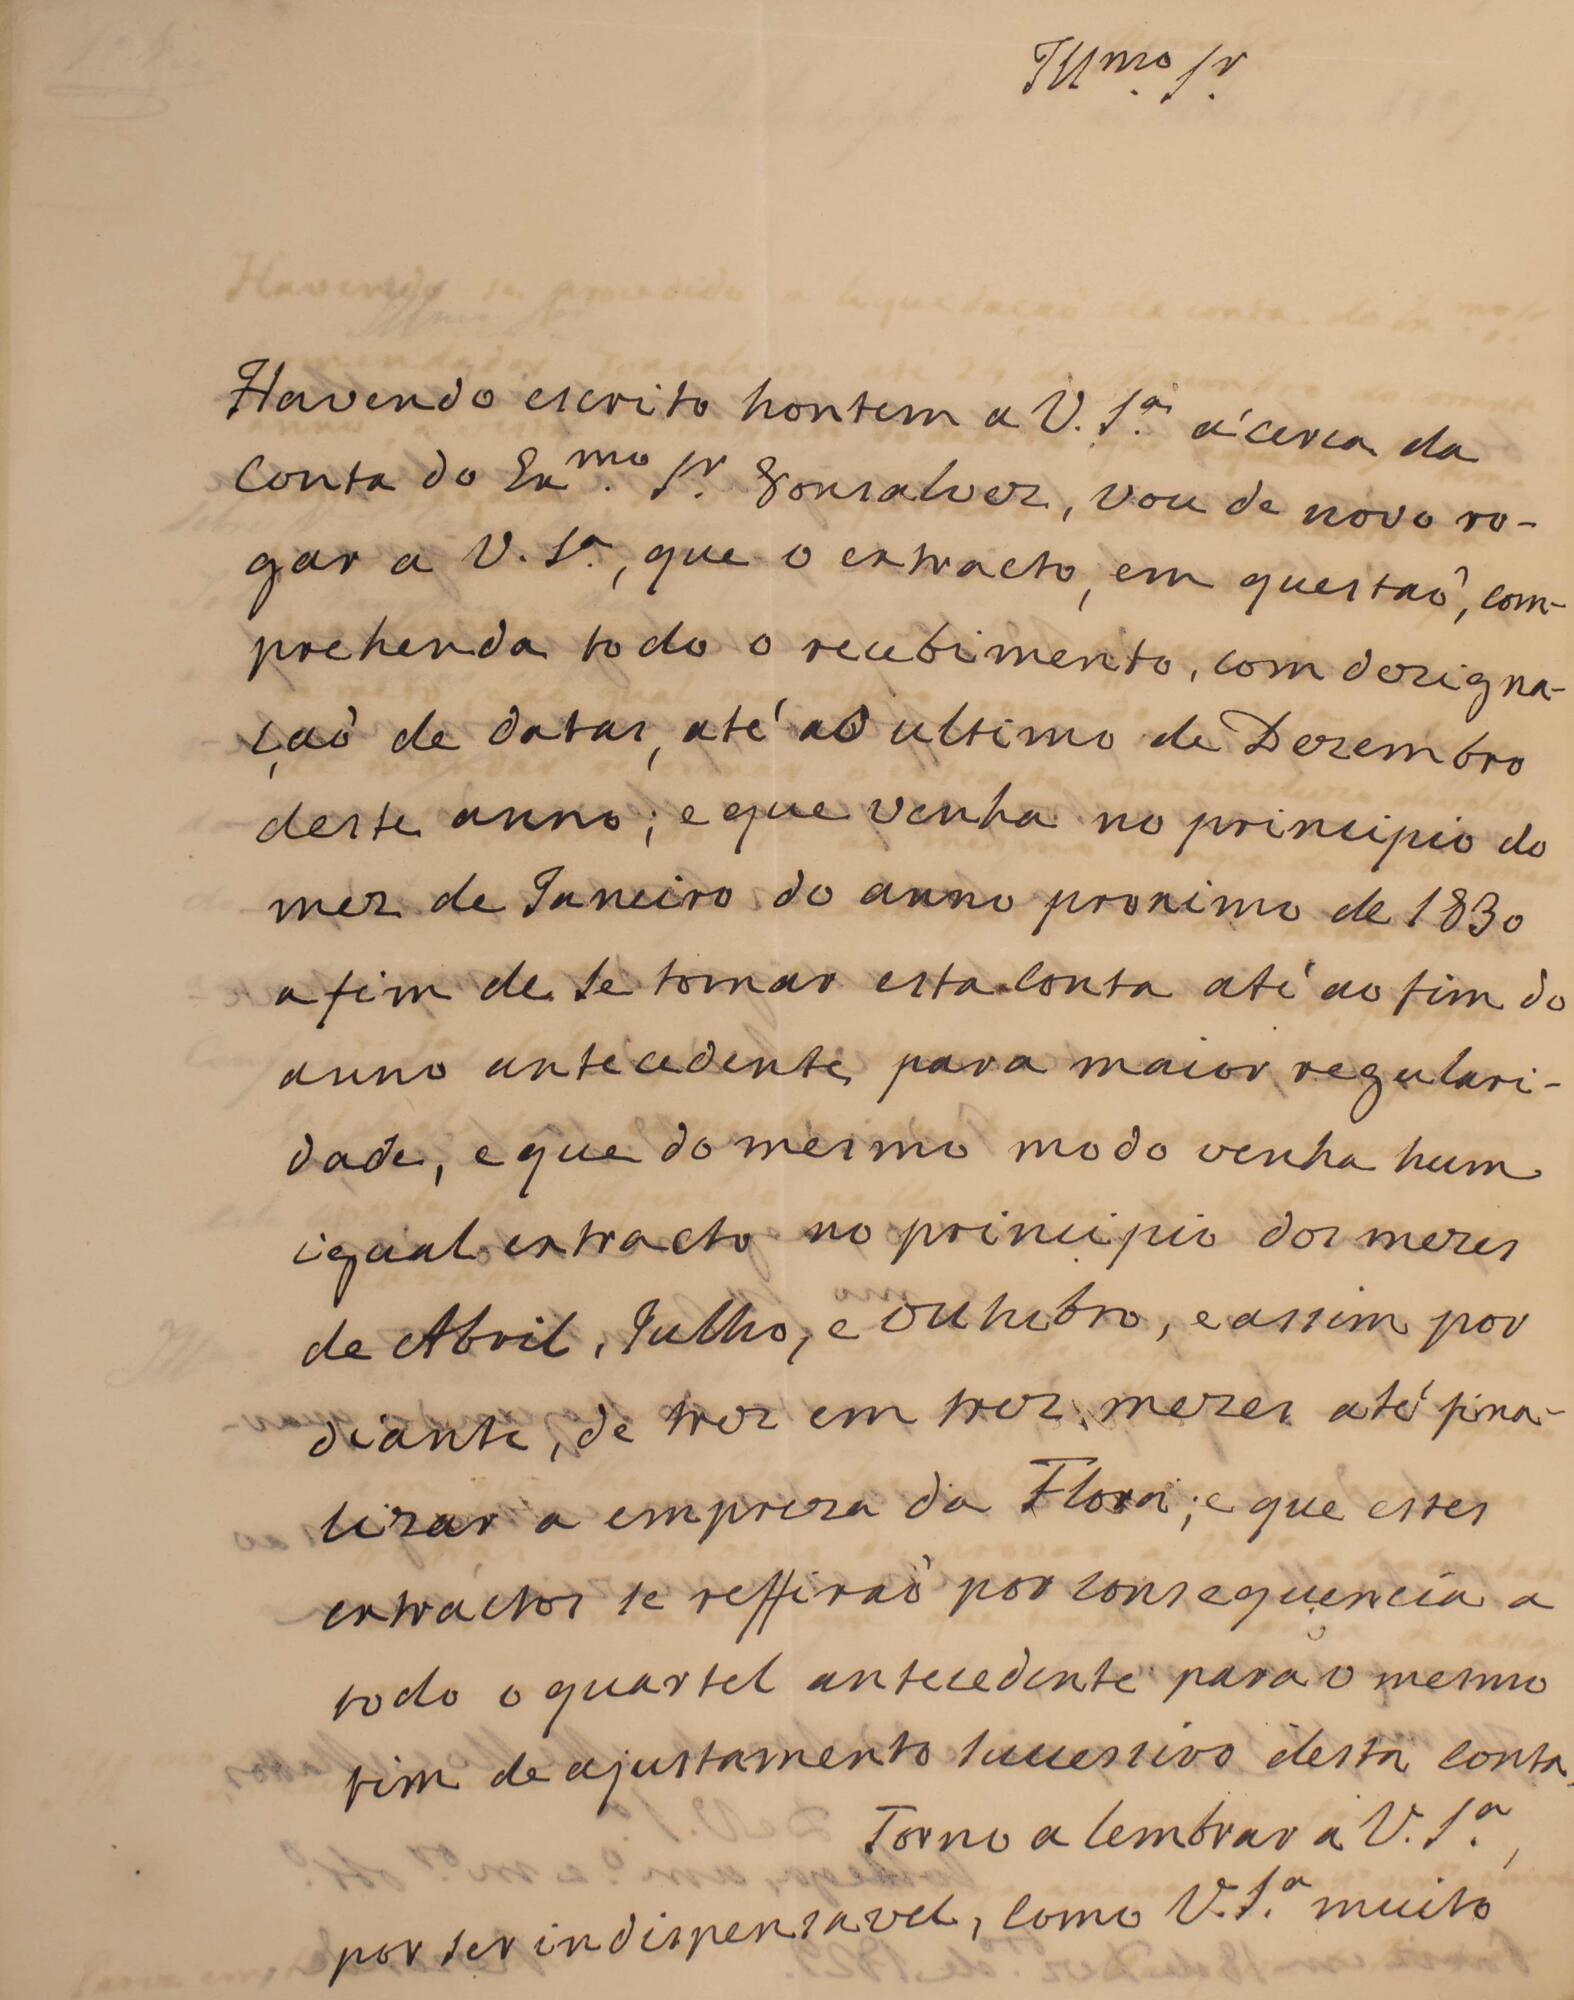 Ill.mo Sr.
Havendo escrito hontem a V. S.ª á cerca da
conta do Ex.mo Sr. Gonsalvez, vou de novo ro-
gar a V. S.ª, que o extracto, em questaõ, com-
prehenda todo o recebimento, com dezigna-
çaõ de datas, até ao ultimo de Dezembro
deste anno; e que venha no principio do
mez de Janeiro do anno proximo de 1830
a fim de se tomar esta conta até ao fim do
anno antecedente para maior regulari-
dade, e que do mesmo modo venha hum
igual extracto no principio dos mezes
de Abril, Julho, e Outubro, e assim por
diante, de trez em trez mezes até fina-
lizar a empreza da Flora; e que estes
extractos se reffiraõ por consequencia a
todo o quartel antecedente para o mesmo
fim de ajustamento sucessivo desta conta.
Torno a lembrar a V. S.ª,
por ser indispensavel, como V. S.ª muito